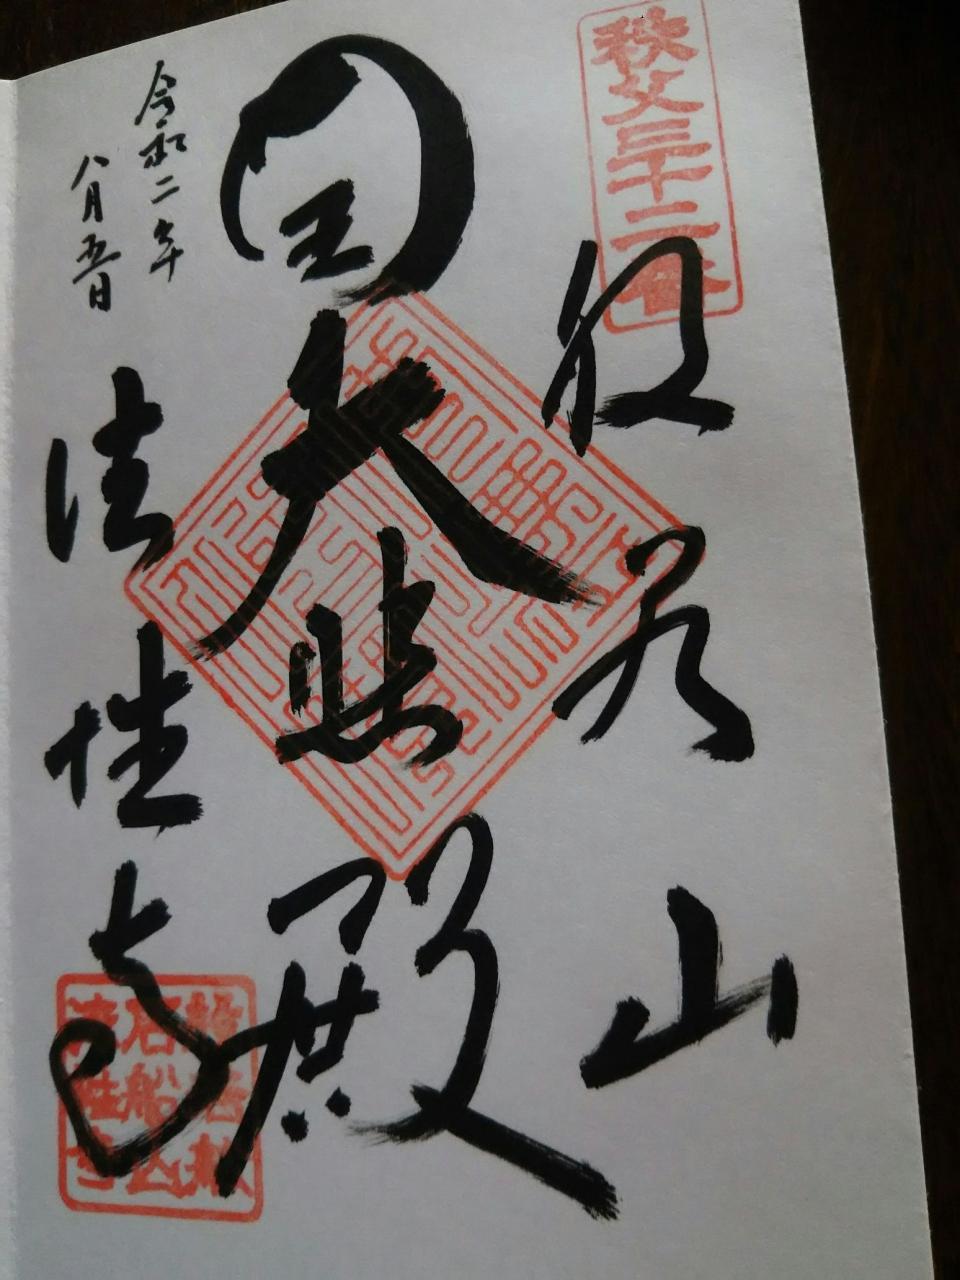 秩父三十二番
般若山
大悲殿
令和二年
八月五日
法性寺
石船山
法性寺